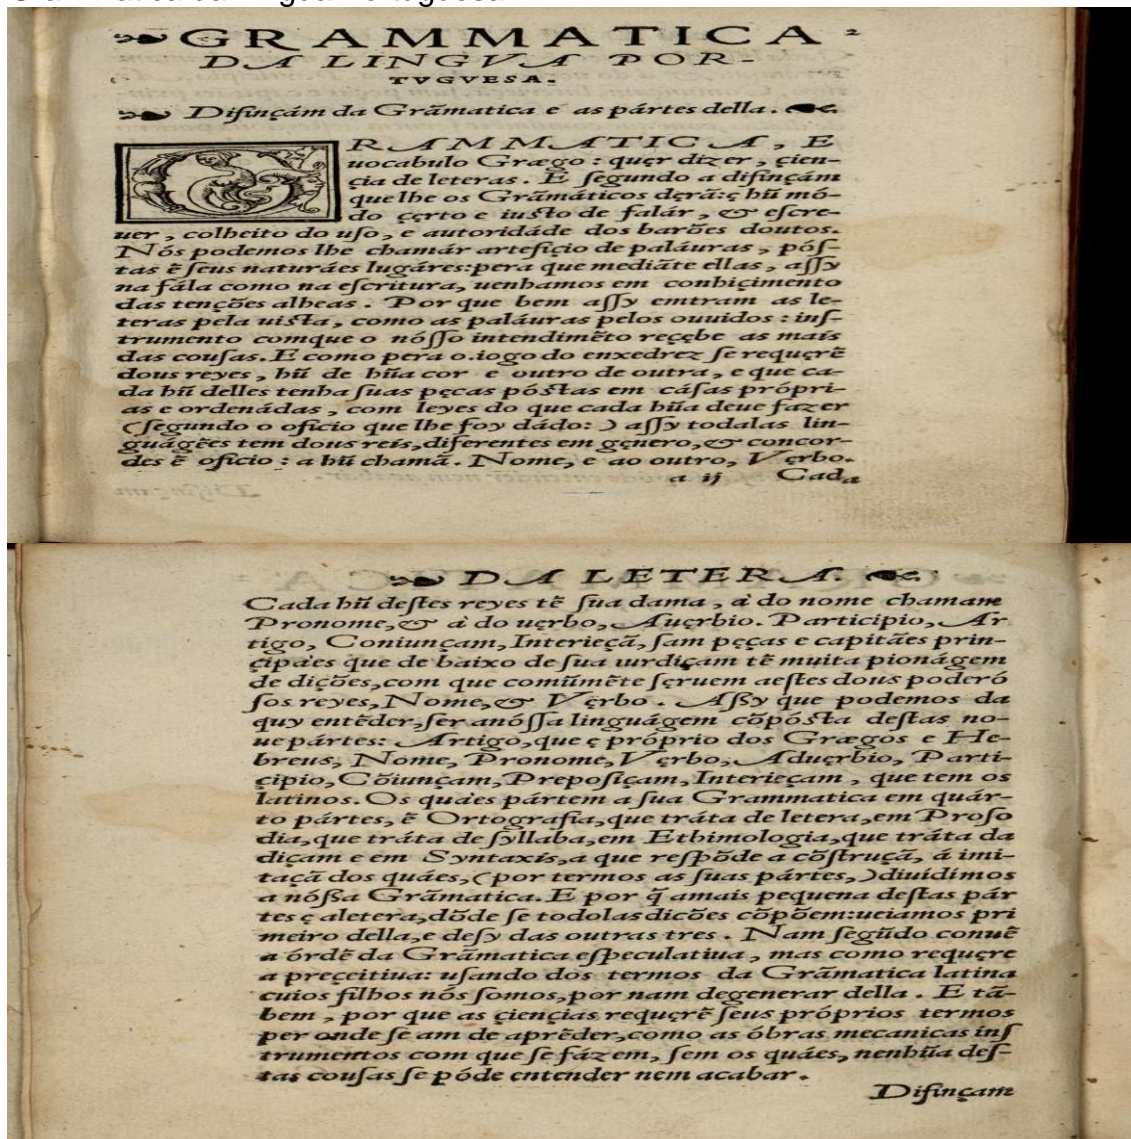 GRAMMATICA 2
DA LINGVA POR-
TVGVESA.
Difinçám da Grãmatica e as pártes della.
GRAMMATICA, E
uocabulo Grægo : quęr dizer, çien-
çia de leteras. E segundo a difinçám
que lhe os Grãmáticos dęrã: ę hũ mó-
do çęrto e iusto de falár, & escre-
uer, colheito do uso, e autoridáde dos barões doutos.
Nós podemos lhe chamár arteficio de paláuras, pós-
tas ẽ seus naturáes lugáres: pera que mediãte ellas, assy
na fála como na escritura, uenhamos em conhiçimento
das tenções alheas. Por que bem assy emtram as le-
teras pela uista, como as paláuras pelos ouuidos : ins-
trumento comque o nósso intendimẽto reçębe as mais
das cousas. E como pera o iogo do enxedrez se requęrẽ
dous reyes, hũ de hũa cor e outro de outra, e que ca-
da hũ delles tenha suas pęcas póstas em cásas própri-
as e ordenádas, com leyes do que cada hũa deue fazer
(segundo o oficio que lhe foy dádo:) assy todalas lin-
guágẽes tem dous reis, diferentes em gęnero, & concor-
des ẽ oficio : a hũ chamã. Nome, e ao outro, Vęrbo.
a ij Cada
DA LETERA.
Cada hũ destes reyes tẽ sua dama, à do nome chamam
Pronome, & à do uęrbo, Auęrbio. Participio, Ar
tigo, Coniunçam, Interieçã, sam pęças e capitães prin-
çipáes que de baixo de sua iurdiçam tẽ muita pionágem
de dições, com que comũmẽte sęruem aestes dous poderó
sos reyes, Nome, & Vęrbo. Assy que podemos da
quy entẽder, ser anóssa linguágem cõpósta destas no-
ue pártes: Artigo, que ę próprio dos Grægos e He-
breus, Nome, Pronome, Vęrbo, Aduęrbio, Parti-
çipio, Cõiunçam, Preposiçam, Interieçam, que tem os
latinos. Os quáes pártem a sua Grammatica em quár-
to pártes, ẽ Ortografia, que tráta de letera, em Proso
dia, que tráta de syllaba, em Ethimologia, que tráta da
diçam e em Syntaxis, a que respõde a cõstruçã, á imi-
taçã dos quáes, (por termos as suas pártes,) diuidimos
a nóssa Grãmatica. E por q̃ amais pequena destas pár
tes ę aletera, dõde se todolas dicões cõpõem: ueiamos pri
meiro della, e desy das outras tres. Nam segũdo conuẽ
a órdẽ da Grãmatica especulatiua, mas como requęre
a preçeitiua: usando dos termos da Grãmatica latina
cuios filhos nós somos, por nam degenerar della. E tã-
bem, por que as çiençias requęrẽ seus próprios termos
per onde se am de aprẽder, como as óbras mecanicas ins
trumentos com que se fázem, sem os quáes, nenhũa des-
tas cousas se póde entender nem acabar.
Difinçam